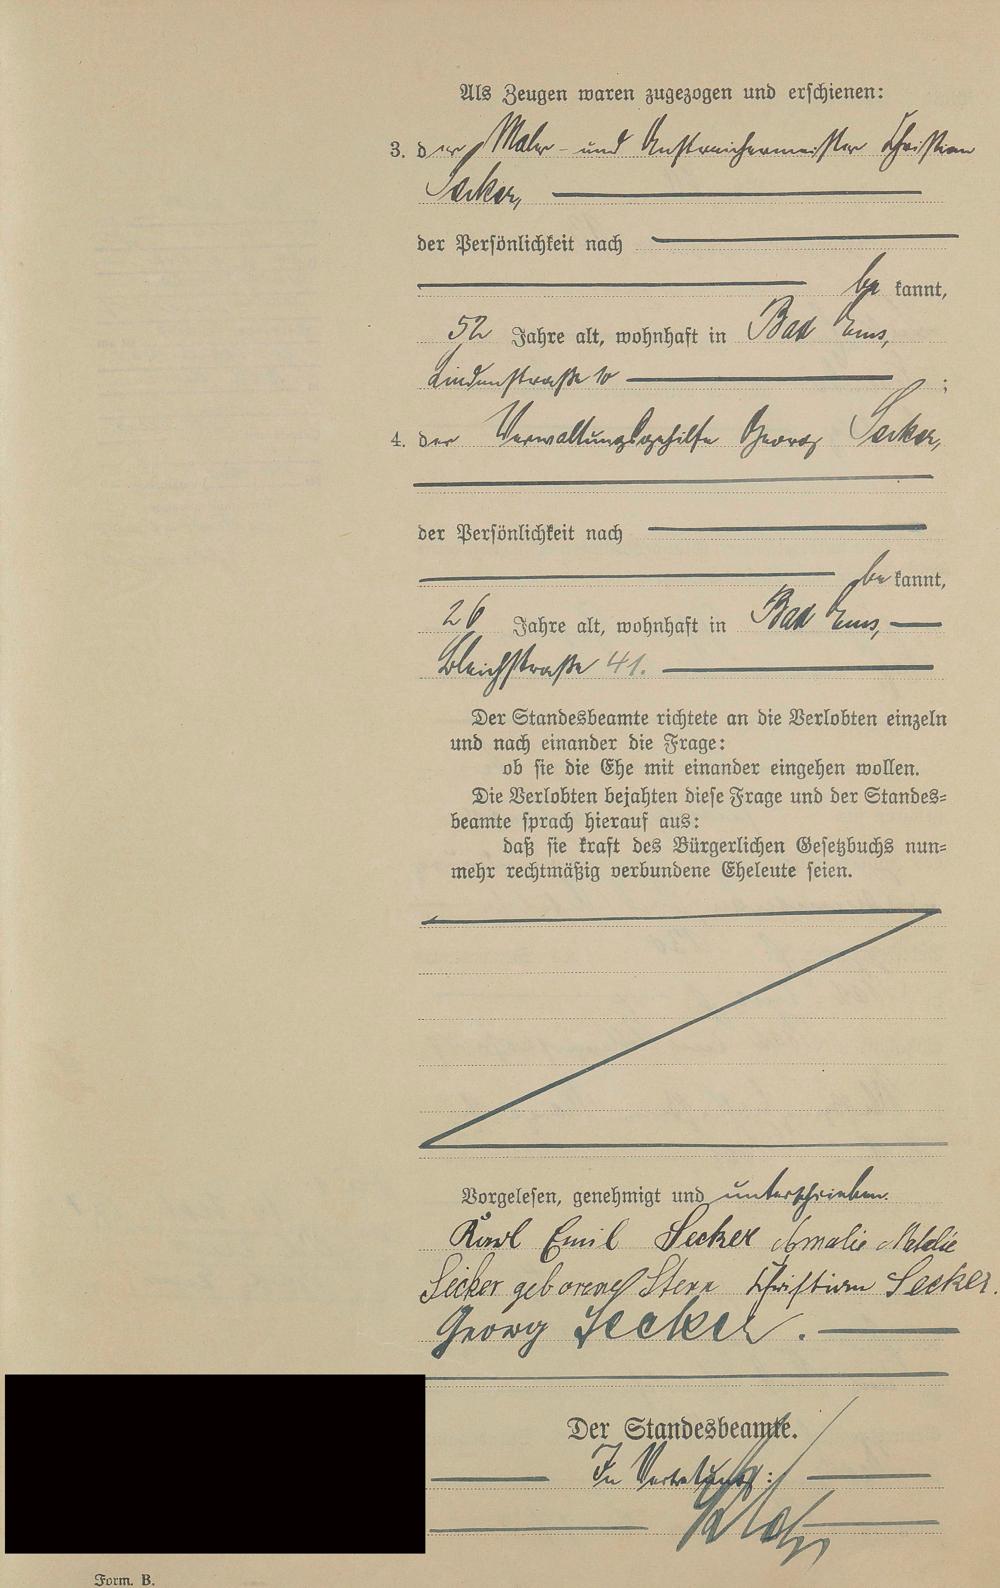 Als Zeugen waren zugezogen und erschienen:
3. der Maler- und Anstreichermeister Christian
Secker,
der Persönlichkeit nach
be kannt,
52 Jahre alt, wohnhaft in Bad Ems,
Lindenstraße 10 ;
4. der Verwaltungsgehilfe Georg Secker,
der Persönlichkeit nach
be kannt,
26 Jahre alt, wohnhaft in Bad Ems,
Bleichstraße 41.
Der Standesbeamte richtete an die Verlobten einzeln
und nach einander die Frage:
ob sie die Ehe mit einander eingehen wollen.
Die Verlobten bejahten diese Frage und der Standes-
beamte sprach hierauf aus:
daß sie kraft des Bürgerlichen Gesetzbuchs nun-
mehr rechtmäßig verbundene Eheleute seien.
Vorgelesen, genehmigt und unterschrieben.
Karl Emil Secker Amalie Natalie
Secker geborene Stern Christian Secker.
Georg Secker.
Der Standesbeamte.
In Vertretung:
Form. B.